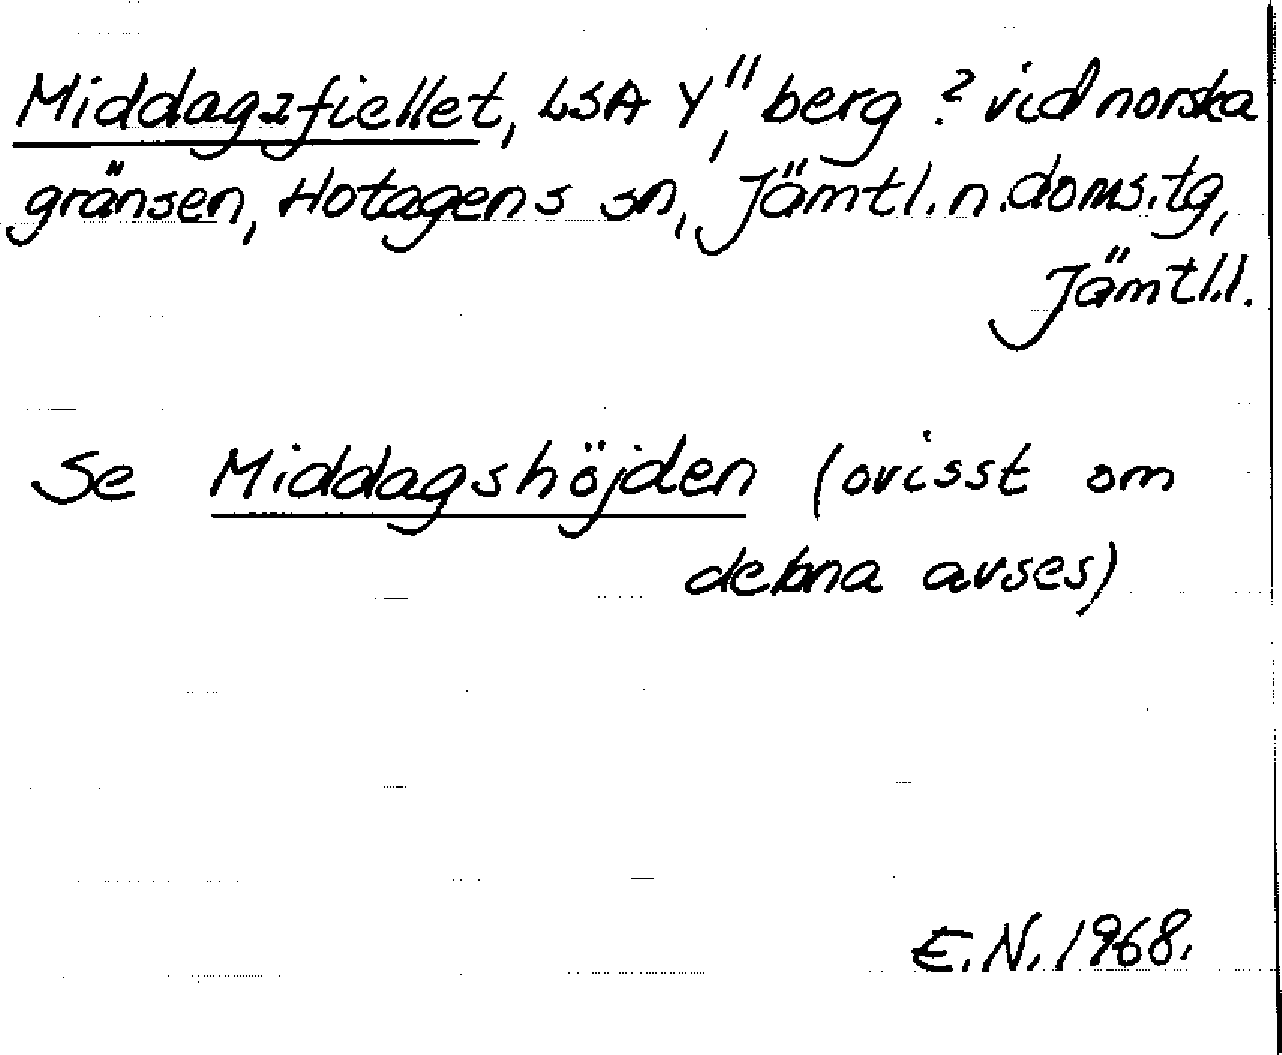 Middagsfiellet, LSA Y", berg ? vid norska
gränsen, Hotagens sn, Jämtl. n. doms. tg,
Jämtl. l.
Se Middagshöjden (ovisst om
denna avses)
E. N. 1968.